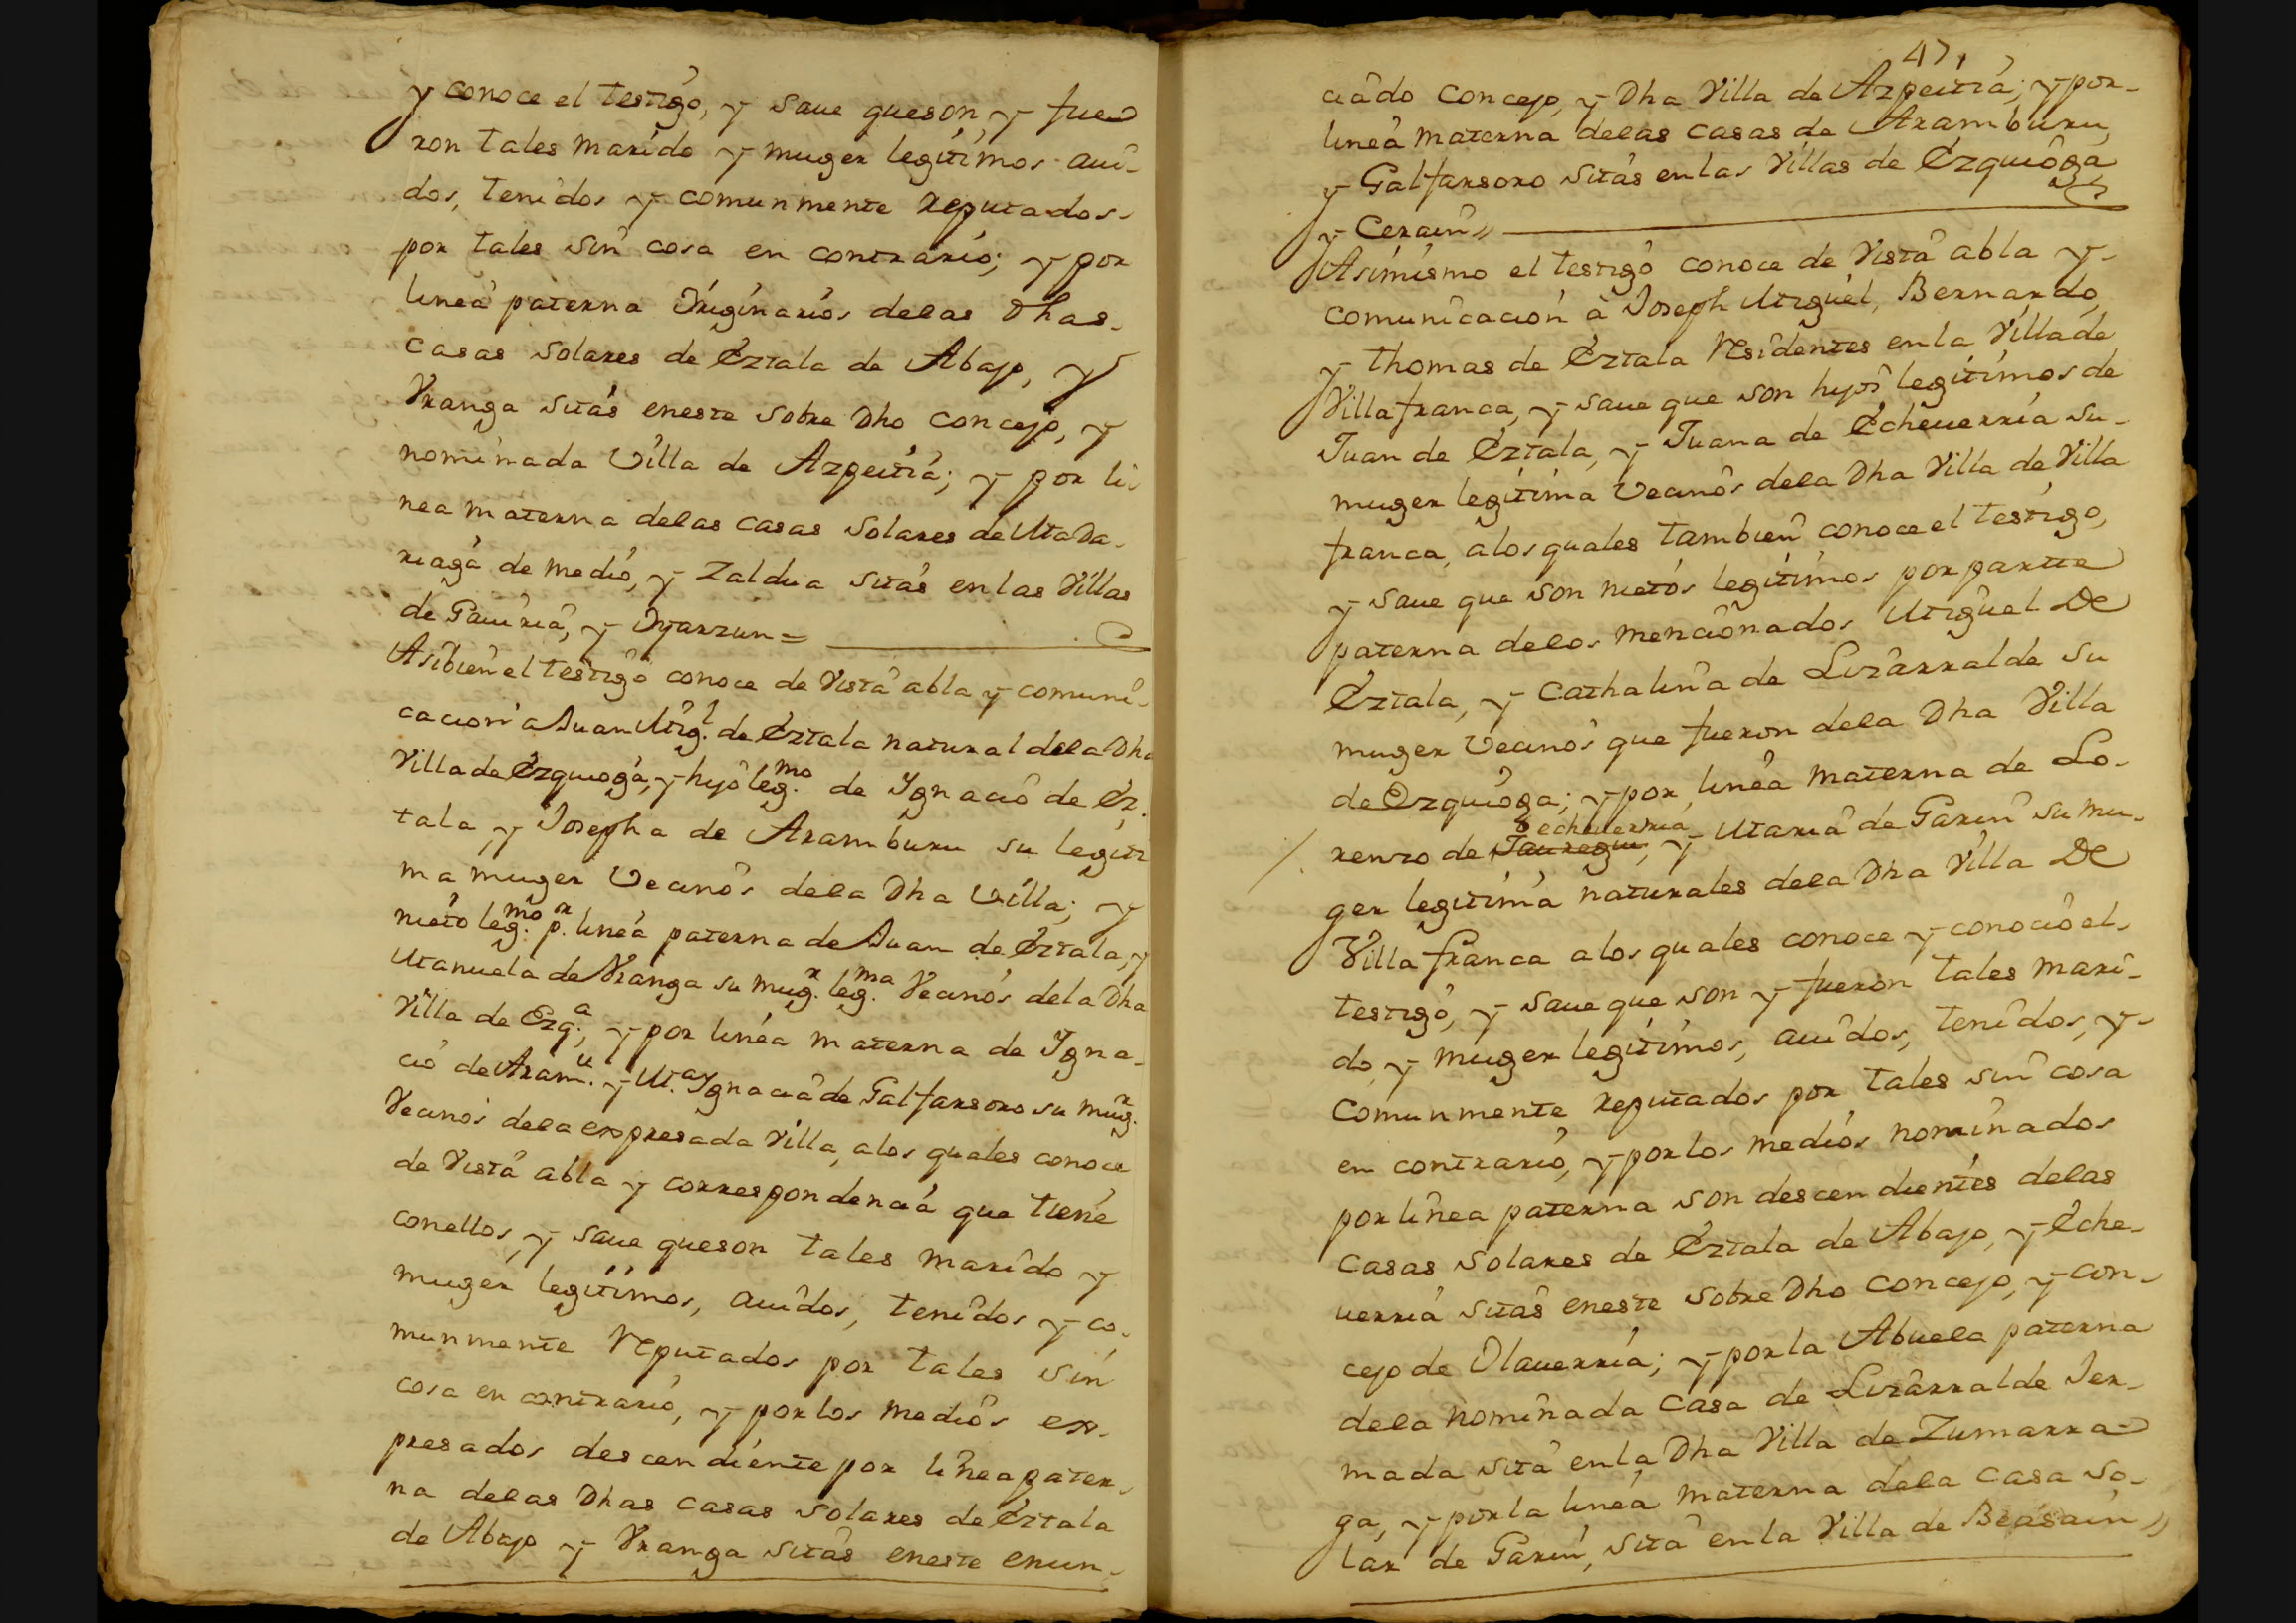 y conoce el testigo, y saue queson, y fue
ron tales marido y muger legitimos aui-
dos, tenidos y comunmente reputados
por tales sin cosa en contrario; y por
linea paterna Originarios delas Dhas
casas solares de Eztala de Abajo, y
Vranga sitas eneste sobre Dho concejo, y
nominada Villa de Azpeitia; y por li
nea materna delas casas solares de Mada-
riaga de medio, y Zaldua sitas en las Villas
de Gauiria, y Oyarzun=
Asibien el testigo conoce de Vista abla y comuni-
cacion a Juan Migl. de Eztala natural dela Dha
Villa de Ezquioga, y hijo legmo. de Ygnacio de Ez-
tala, y Josepha de Aramburu su legiti
ma muger Vecinos dela Dha Villa; y
nieto legmo. pr. linea paterna de Juan de Eztala, y
Manuela de Vranga su mugr. legma. Vecinos dela Dha
Villa de Ezqa.; y por linea materna de Ygna-
cio de Aramu. y Ma. Ygnacia de Galfarsoro su mugr.
Vecinos dela expresada Villa, alos quales conoce
de Vista abla y correspondencia que tiene
conellos, y saue queson tales marido y
muger legitimos, auidos, tenidos y co-
munmente Reputados por tales sin
cosa en contrario, y porlos medios ex-
presados descendiente por linea pater-
na delas Dhas casas solares de Eztala
de Abajo y Vranga sitas eneste enun-
47,
ciado concejo, y Dha Villa de Azpeitia; y por-
linea materna delas casas de Aramburu,
y Galfarsoro sitas enlas Villas de Ezquioga
y Cerain,,
Asimismo el testigo conoce de Vista abla y
comunicacion a Joseph Miguel, Bernardo,
y Thomas de Eztala Residentes enla Villa de
Villafranca, y saue que son hijos legitimos de
Juan de Eztala, y Juana de Echeuerria su
muger legitima Vecinos dela Dha Villa de Villa
franca, alos quales tambien conoce el testigo,
y saue que son nietos legitimos por partte
paterna delos mencionados Miguel De
Eztala, y Cathalina de Lizarralde su
muger Vecinos que fueron dela Dha Villa
de Ezquioga; y por linea materna de Lo-
echeuerria
renzo de Jauregui, y Maria de Garin su mu-
ger legitima naturales dela Dha Villa De
Villafranca alos quales conoce y conocio el
testigo, y saue que son y fueron tales mari-
do, y muger legitimos, auidos, tenidos, y
comunmente reputados por tales sin cosa
en contrario, y porlos medios nominados
por linea paterna son descendientes delas
casas solares de Eztala de Abajo, y Eche-
uerria sitas eneste sobre Dho concejo, y con-
cejo de Olauerria; y porla Abuela paterna
dela nominada casa de Lizarralde Jer-
mada sita enla Dha Villa de Zumarra
ga, y porla linea materna dela casa so-
lar de Garin, sita enla Villa de Beasain,,